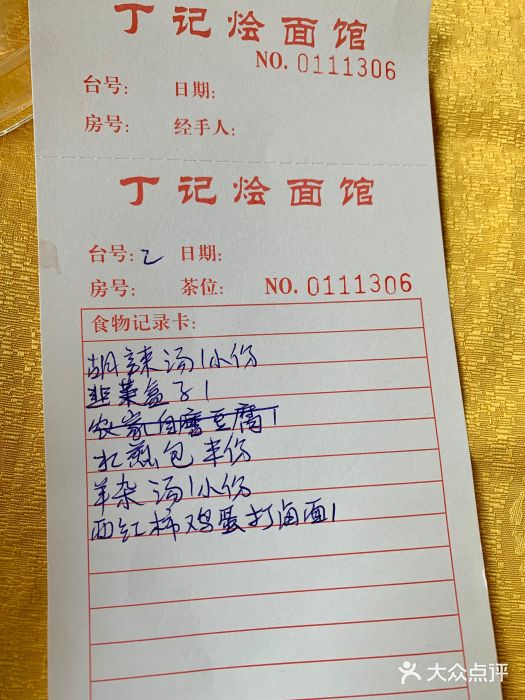 丁记烩面馆
NO. 0111306
台号: 日期:
房号: 经手人:
丁记烩面馆
台号: 2 日期:
房号: 茶位: NO. 0111306
食物记录卡:
胡辣汤1小份
韭菜盒子1
农家自磨豆腐1
水煎包半份
羊杂汤1小份
西红柿鸡蛋打卤面1
大众点评